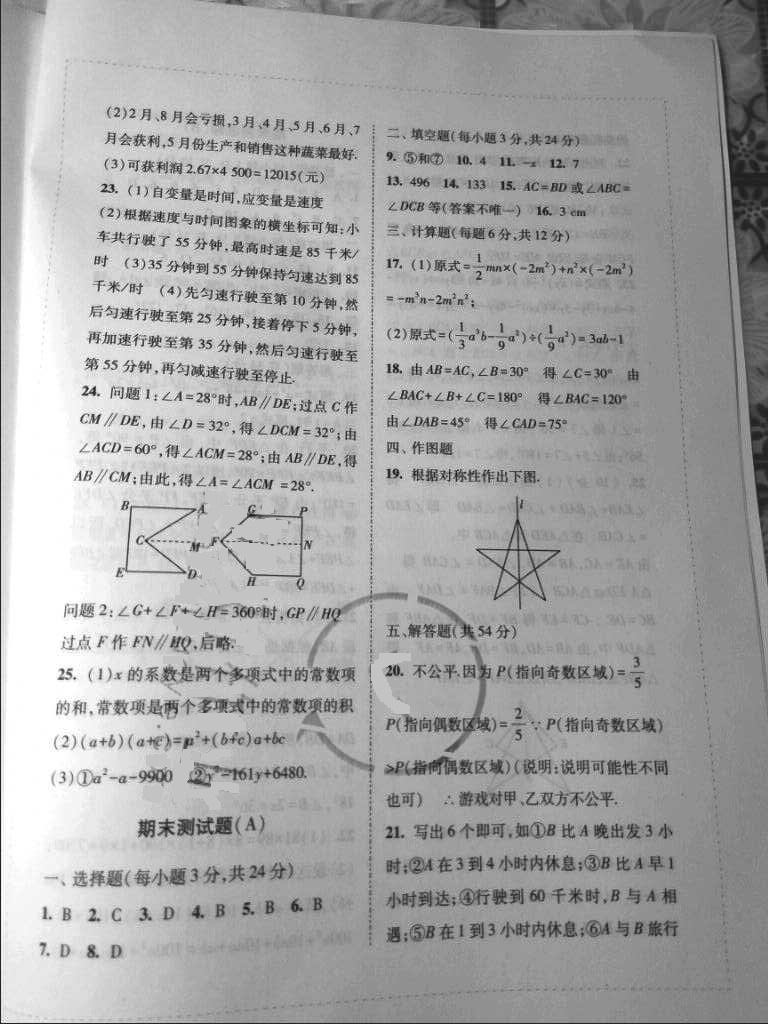 (2)2月、8月会亏损,3月、4月、5月、6月、7
月会获利,5月份生产和销售这种蔬菜最好.
(3)可获利润2.67×4 500=12015(元)
23. (1)自变量是时间,应变量是速度
(2)根据速度与时间图象的横坐标可知:小
车共行驶了55分钟,最高时速是85千米/
时 (3)35分钟到55分钟保持匀速达到85
千米/时 (4)先匀速行驶至第10分钟,然
后匀速行驶至第25分钟,接着停下5分钟,
再加速行驶至第35分钟,然后匀速行驶至
第55分钟,再匀减速行驶至停止.
24. 问题1:∠A=28°时,AB∥DE;过点C作
CM∥DE,由∠D=32°,得∠DCM=32°;由
∠ACD=60°,得∠ACM=28°;由AB∥DE,得
AB∥CM;由此,得∠A=∠ACM=28°.
B A G P
C M F N
E D H Q
问题2:∠G+∠F+∠H=360°时,GP∥HQ
过点F作FN∥HQ,后略.
25. (1)x的系数是两个多项式中的常数项
的和,常数项是两个多项式中的常数项的积
(2)(a+b)(a+c)=a²+(b+c)a+bc
(3)①a²-a-9900 ②y²-161y+6480.
期末测试题(A)
一、选择题(每小题3分,共24分)
1. B 2. C 3. D 4. B 5. B 6. B
7. D 8. D
二、填空题(每小题3分,共24分)
9. ⑤和⑦ 10. 4 11. -x 12. 7
13. 496 14. 133 15. AC=BD或∠ABC=
∠DCB等(答案不唯一) 16. 3 cm
三、计算题(每题6分,共12分)
17. (1)原式=1/2mn×(-2m²)+n²×(-2m²)
=-m³n-2m²n²;
(2)原式=(1/3a³b-1/9a²)÷(1/9a²)=3ab-1
18. 由AB=AC,∠B=30° 得∠C=30° 由
∠BAC+∠B+∠C=180° 得∠BAC=120°
由∠DAB=45° 得∠CAD=75°
四、作图题
19. 根据对称性作出下图.
l
五、解答题(共54分)
20. 不公平.因为P(指向奇数区域)=3/5
P(指向偶数区域)=2/5 ∵P(指向奇数区域)
>P(指向偶数区域)(说明:说明可能性不同
也可) ∴游戏对甲、乙双方不公平.
21. 写出6个即可,如①B比A晚出发3小
时;②A在3到4小时内休息;③B比A早1
小时到达;④行驶到60千米时,B与A相
遇;⑤B在1到3小时内休息;⑥A与B旅行